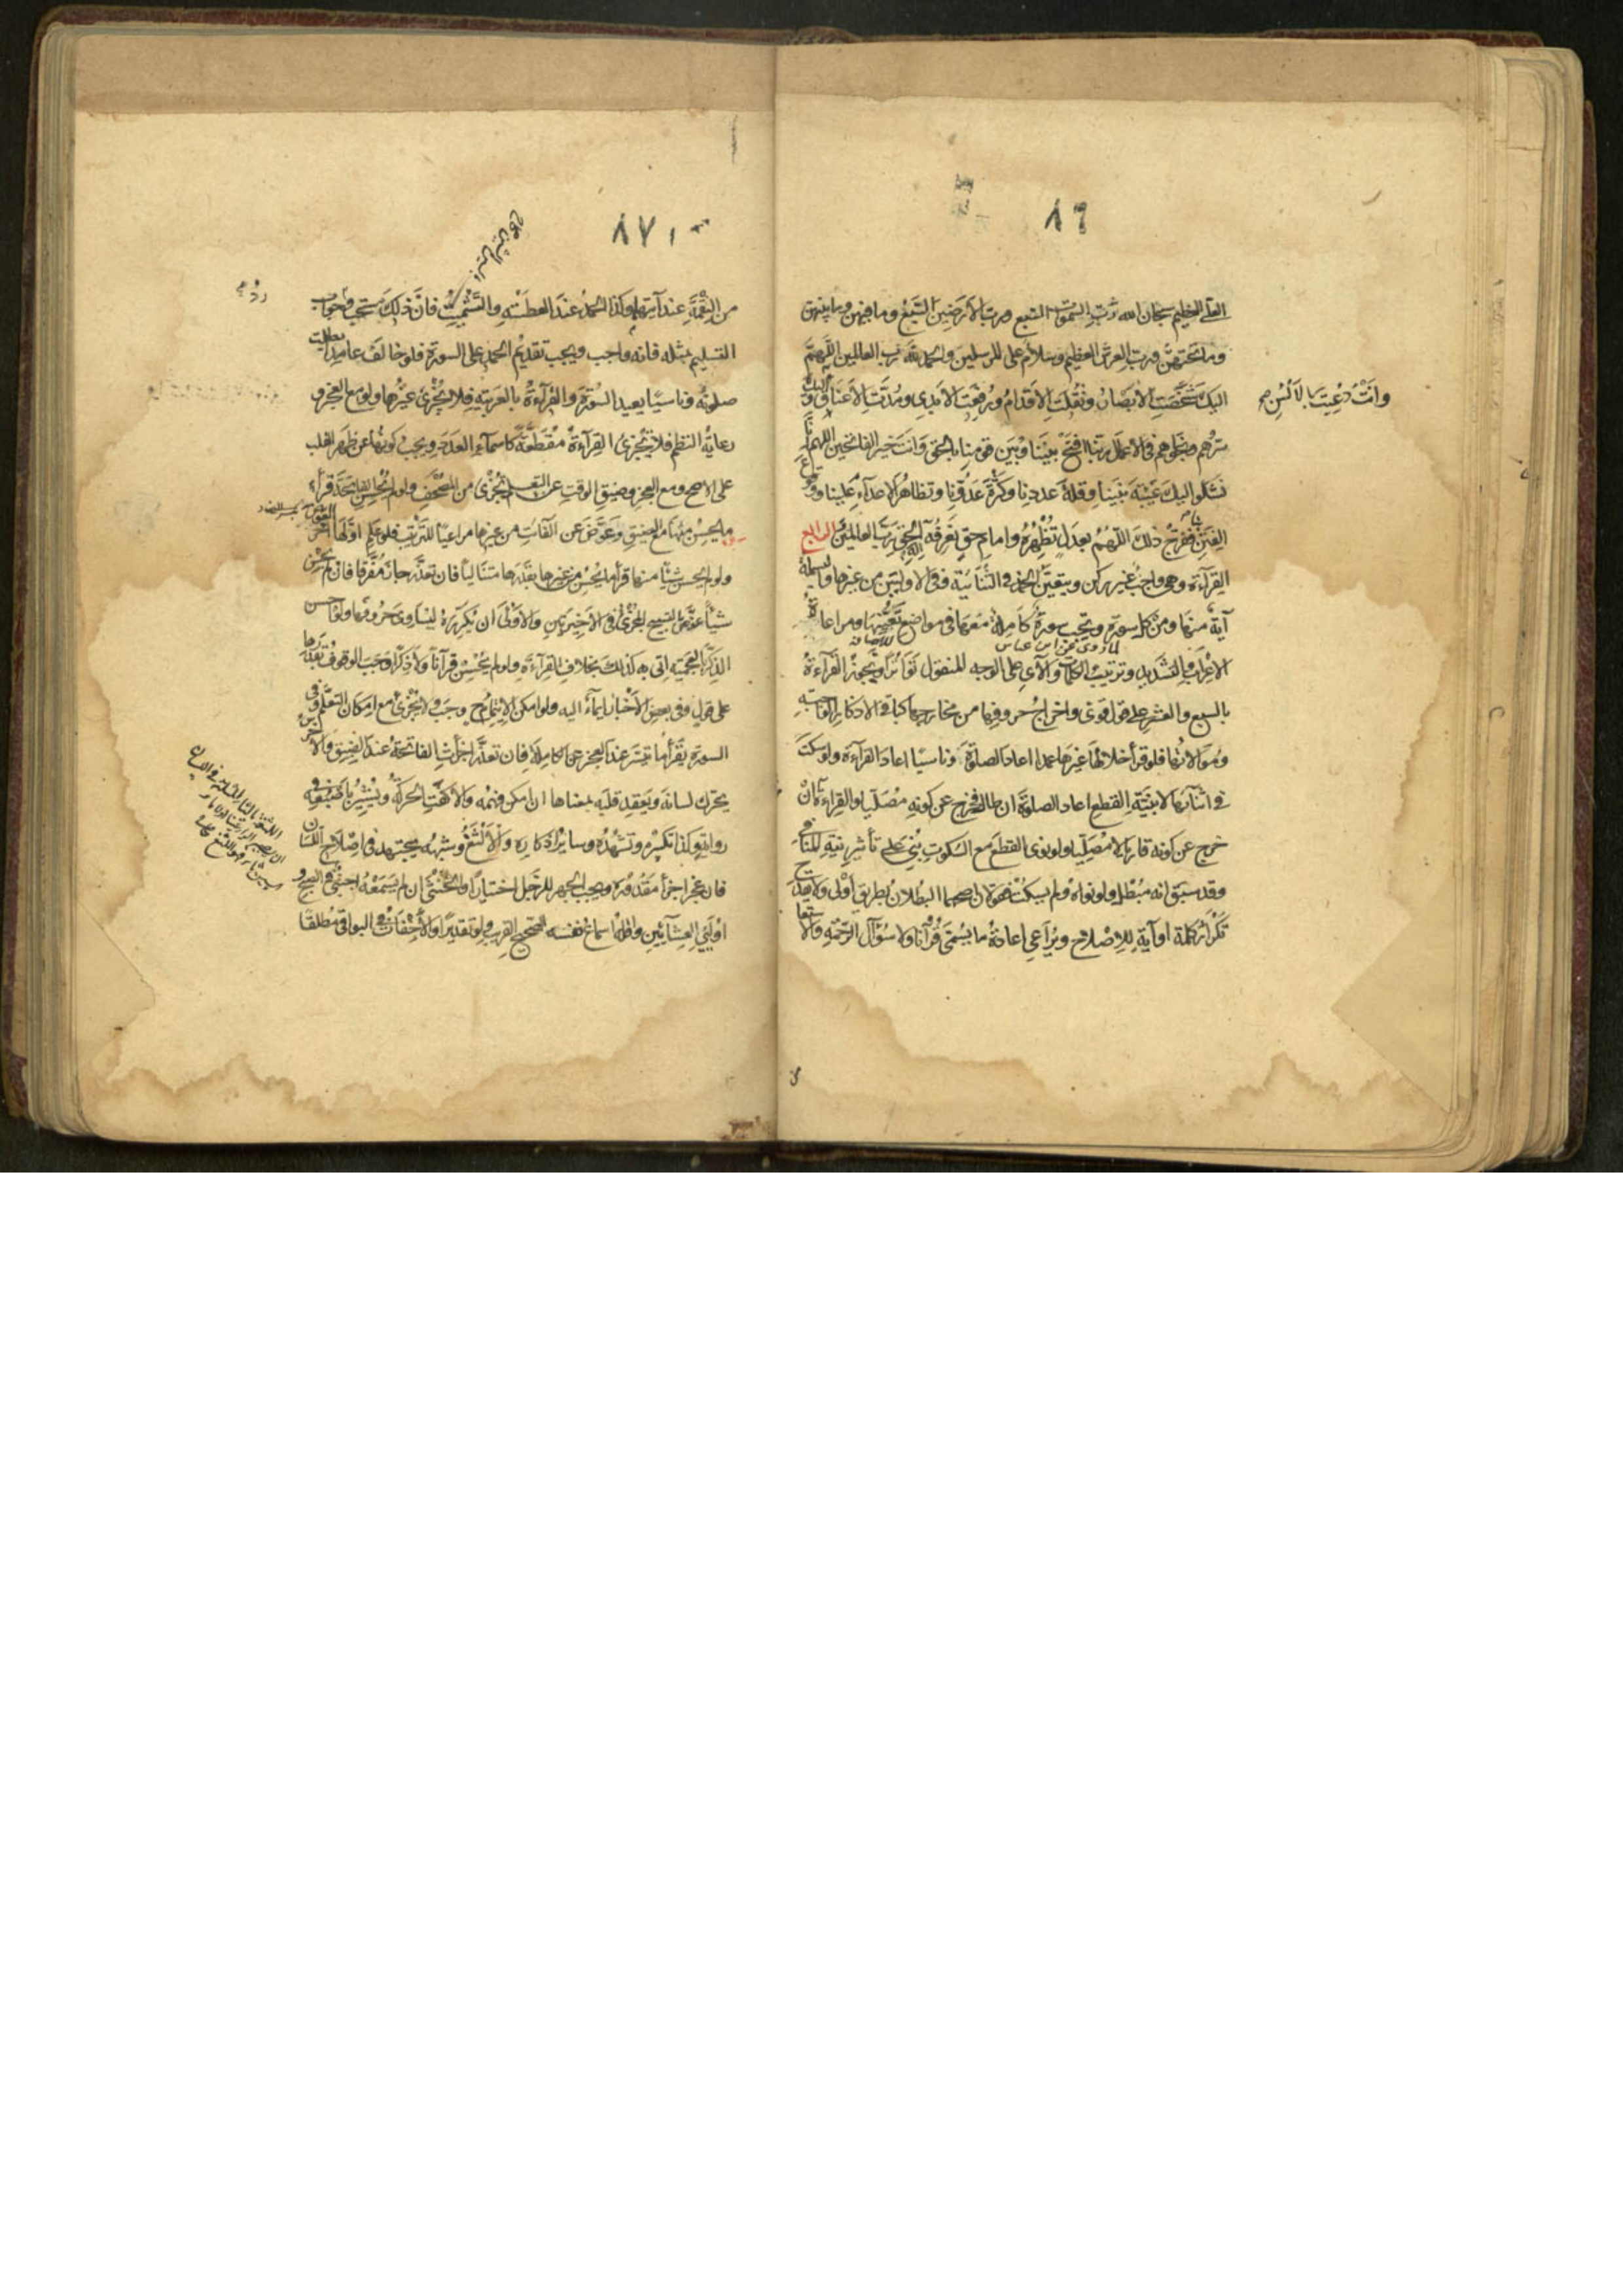 ٨٦
العلي العظيم سبحان الله رب السموات السبع ورب الأرضين السبع وما فيهن وما بينهن
وما تحتهن ورب العرش العظيم وسلام على المرسلين والحمد لله رب العالمين اللهم
اليك شخصت الابصار ونقلت الاقدام ورفعت الايدي ومدت الاعناق واليك
وانت دعيت بالالسن
سرهم ونجواهم في الاعمال ربنا افتح بيننا وبين قومنا بالحق وانت خير الفاتحين اللهم انا
نشكو اليك غيبة نبينا وقلة عددنا وكثرة عدونا وتظاهر الاعداء علينا ووقوع
الفتن بنا ففرج ذلك اللهم بعدل تظهره وامام حق تعرفه اله الحق رب العالمين الرابع
القراءة وهي واجب غير ركن ويتعين الحمد في الثنائية وفي الاوليين من غيرها والبسملة
آية منها ومن كل سورة ويجب سورة كاملة معها في مواضع تعينها ومراعاة
لما روي عن ابن عباس
الاعراب والتشديد وترتيب الكلمات والآي على الوجه المنقول تواترا ويجوز القراءة
بالسبع والعشر على قول قوي واخراج حروفها من مخارجها كباقي الاذكار الواجبة
وموالاتها فلو قرأ خلالها غيرها عمدا اعاد الصلوة وناسيا اعاد القراءة ولو سكت
في اثنائها لا بنية القطع اعاد الصلوة ان طال فخرج عن كونه مصليا والقراءة ان
خرج عن كونه قاريا لا مصليا ولو نوى القطع مع السكوت بني على تأثير نية المنافي
وقد سبق انه مبطل ولو نواه ولم يسكت فقولان اصحهما البطلان بطريق أولى ولا يقدح
تكرار كلمة او آية للاصلاح ويراعى اعادة ما يسمى قرآنا ولا سؤال الرحمة والاستعاذة
٨٧
من النقمة عند آيتهما وكذا الحمد عند العطسة والتسميت فان ذلك مستحب وجواب
التسليم بمثله فانه واجب ويجب تقديم الحمد على السورة فلو خالف عامدا بطلت
صلوته وناسيا يعيد السورة والقراءة بالعربية فلا يجزي غيرها ولو مع العجز و
رعاية النظم فلا تجزي القراءة مقطعة كاسماء العدد ويجب كونها عن ظهر القلب
على الاصح ومع العجز وضيق الوقت عن التعلم يجزي من المصحف ولو لم يحسن الفاتحة قرأ
ما يحسن منها مع الضيق وعوض عن الفائت من غيرها مراعيا للترتيب فلو علم اولها اخر العوض
ولو لم يحسن شيئا منها قرأ ما يحسن من غيرها بقدرها متتاليا فان تعذر جاز مفرقا فان لم يحسن
شيئا عوض بالتسبيح المجزي في الاخيرتين والاولى ان يكرره ليساوي حروفها ولو احسن
الذكر بالعجمية اتى به كذلك بخلاف القراءة ولو لم يحسن قرآنا ولا ذكرا وجب الوقوف بقدرها
على قول وفي بعض الاخبار ايماء اليه ولو امكن الايتمام وجب ولا يجزي مع امكان التعلم وفي
السورة يقرأ ما تيسر عند العجز عن الكاملة فان تعذر اجزأت الفاتحة عند الضيق والاخرس
يحرك لسانه ويعقد قلبه بمعناها ان امكن فهمه والا كفت الحركة ويشير باصبعه في
رواية وكذا تكبيره وتشهده وسائر اذكاره والالثغ وشبهه يجتهد في اصلاح اللسان
فان عجز اجزأ مقدوره ويجب الجهر للرجل اختيارا والخنثى ان لم يسمعه اجنبي في الصبح و
اوليي العشائين واقله اسماع نفسه الصحيح القريب ولو تقديرا والاخفات في البواقي مطلقا